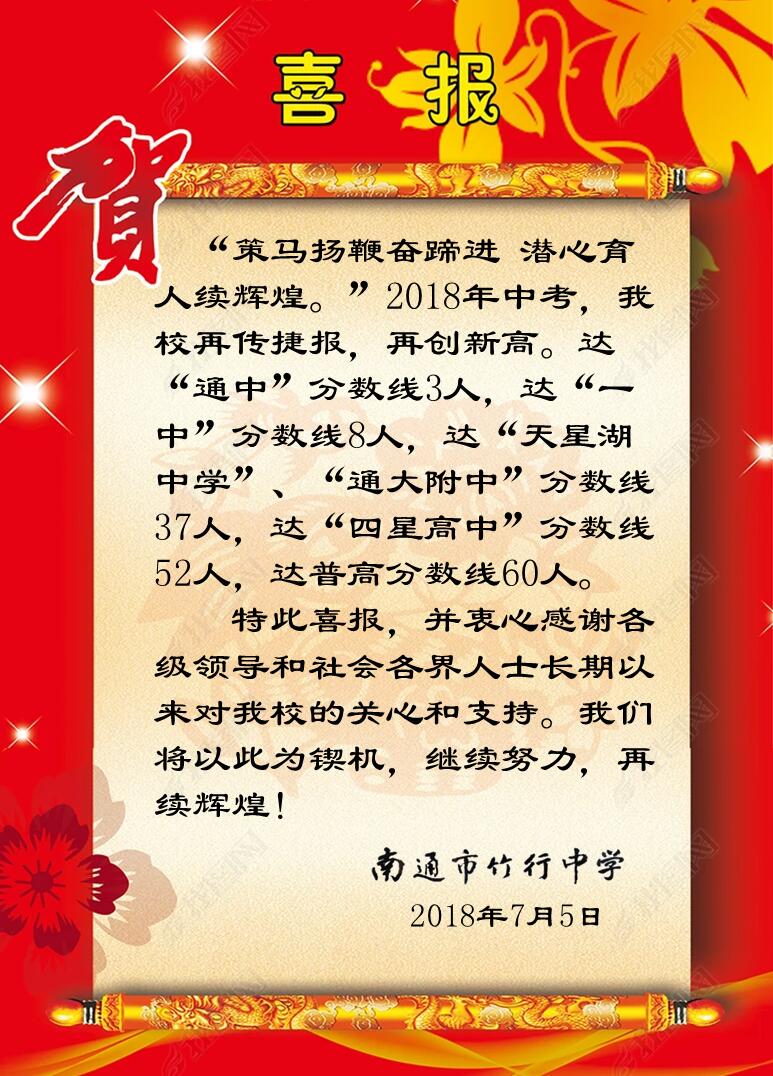 喜 报
賀
“策马扬鞭奋蹄进 潜心育
人续辉煌。”2018年中考，我
校再传捷报，再创新高。达
“通中”分数线3人，达“一
中”分数线8人，达“天星湖
中学”、“通大附中”分数线
37人，达“四星高中”分数线
52人，达普高分数线60人。
特此喜报，并衷心感谢各
级领导和社会各界人士长期以
来对我校的关心和支持。我们
将以此为锲机，继续努力，再
续辉煌！
南通市竹行中学
2018年7月5日